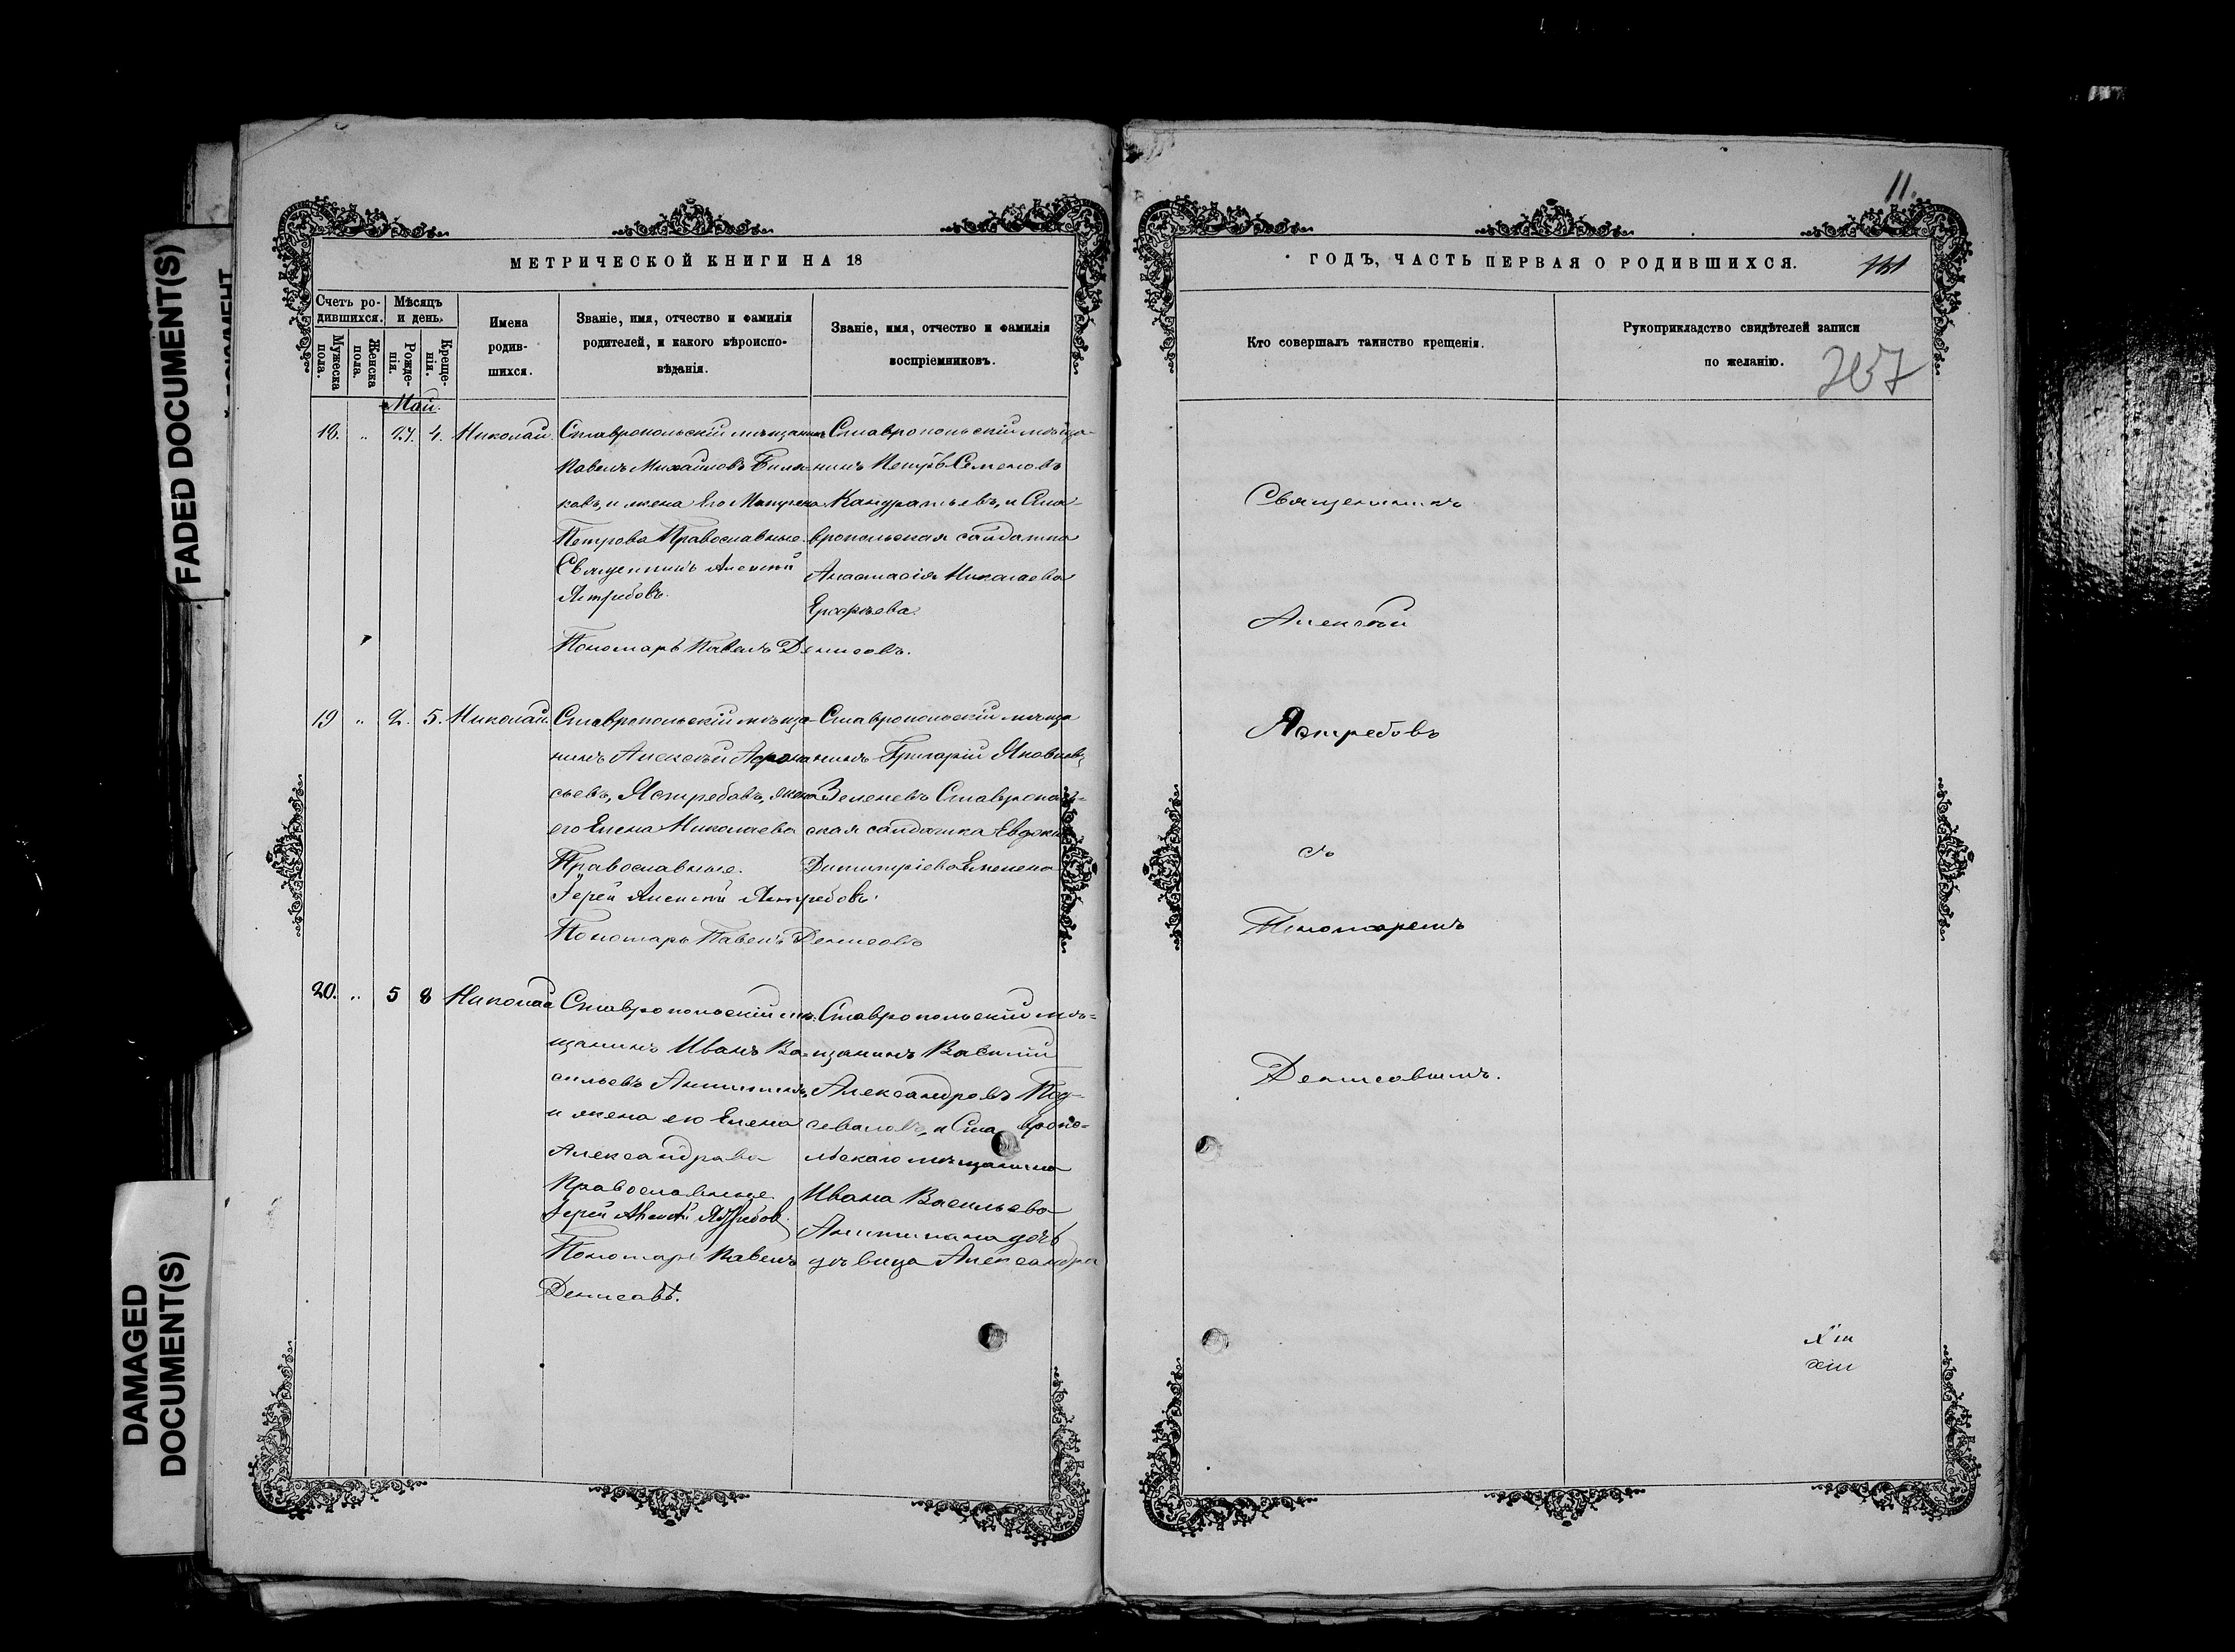 FADED DOCUMENT(S)
DAMAGED
DOCUMENT(S)
МЕТРИЧЕСКОЙ КНИГИ НА 18
Счетъ ро-
дившихся.
Мѣсяцъ
и день.
Мужеска
пола.
Женска
пола.
Рожде-
нія.
Креще-
нія.
Имена
родив-
шихся.
Званіе, имя, отчество и фамилія
родителей, и какого вѣроиспо-
вѣданія.
Званіе, имя, отчество и фамилія
воспріемниковъ.
Май.
18. " 27. 4. Николай.
Ставропольскій мѣщанинъ
Павелъ Михайловъ
ковъ, и жена Его Матрена
Петрова Православные.
Священникъ Алексій
Ястребовъ.
Пономарь Павелъ Денисовъ.
Ставропольскій мѣща-
нинъ Петръ Семеновъ
Кандратьевъ, и Ста-
вропольская салдатка
Анастасія Николаева
19 " 2. 5. Николай.
Ставропольскій мѣща-
нинъ Алексѣй
сьевъ, Ястребовъ, жена
его Елена Николаева
Православные.
Іерей Алексій Ястребовъ.
Пономарь Павелъ Денисовъ
Ставропольскій мѣща
нинъ Григорій Яковлевъ
Зеленевъ Ставрополь-
ская салдатка Евдокія
Димитріева
20. " 5 8 Николай
Ставропольскій мѣ-
щанинъ Иванъ Ва-
сильевъ Антипинъ,
и жена его Елена
Александрова
Православные
Іерей Алексій Ястребовъ.
Пономарь Павелъ
Денисовъ.
Ставропольскій мѣ-
щанинъ Василій
Александровъ Под-
севаловъ, и Ставропо-
льскаго мѣщанина
Ивана Васильева
Антипина дочь
дѣвица Александра
11.
ГОДЪ, ЧАСТЬ ПЕРВАЯ О РОДИВШИХСЯ.
Кто совершалъ таинство крещенія.
Рукоприкладство свидѣтелей записи
по желанію.
Священникъ
Алексѣй
Ястребовъ
съ
Пономаремъ
Денисовымъ.